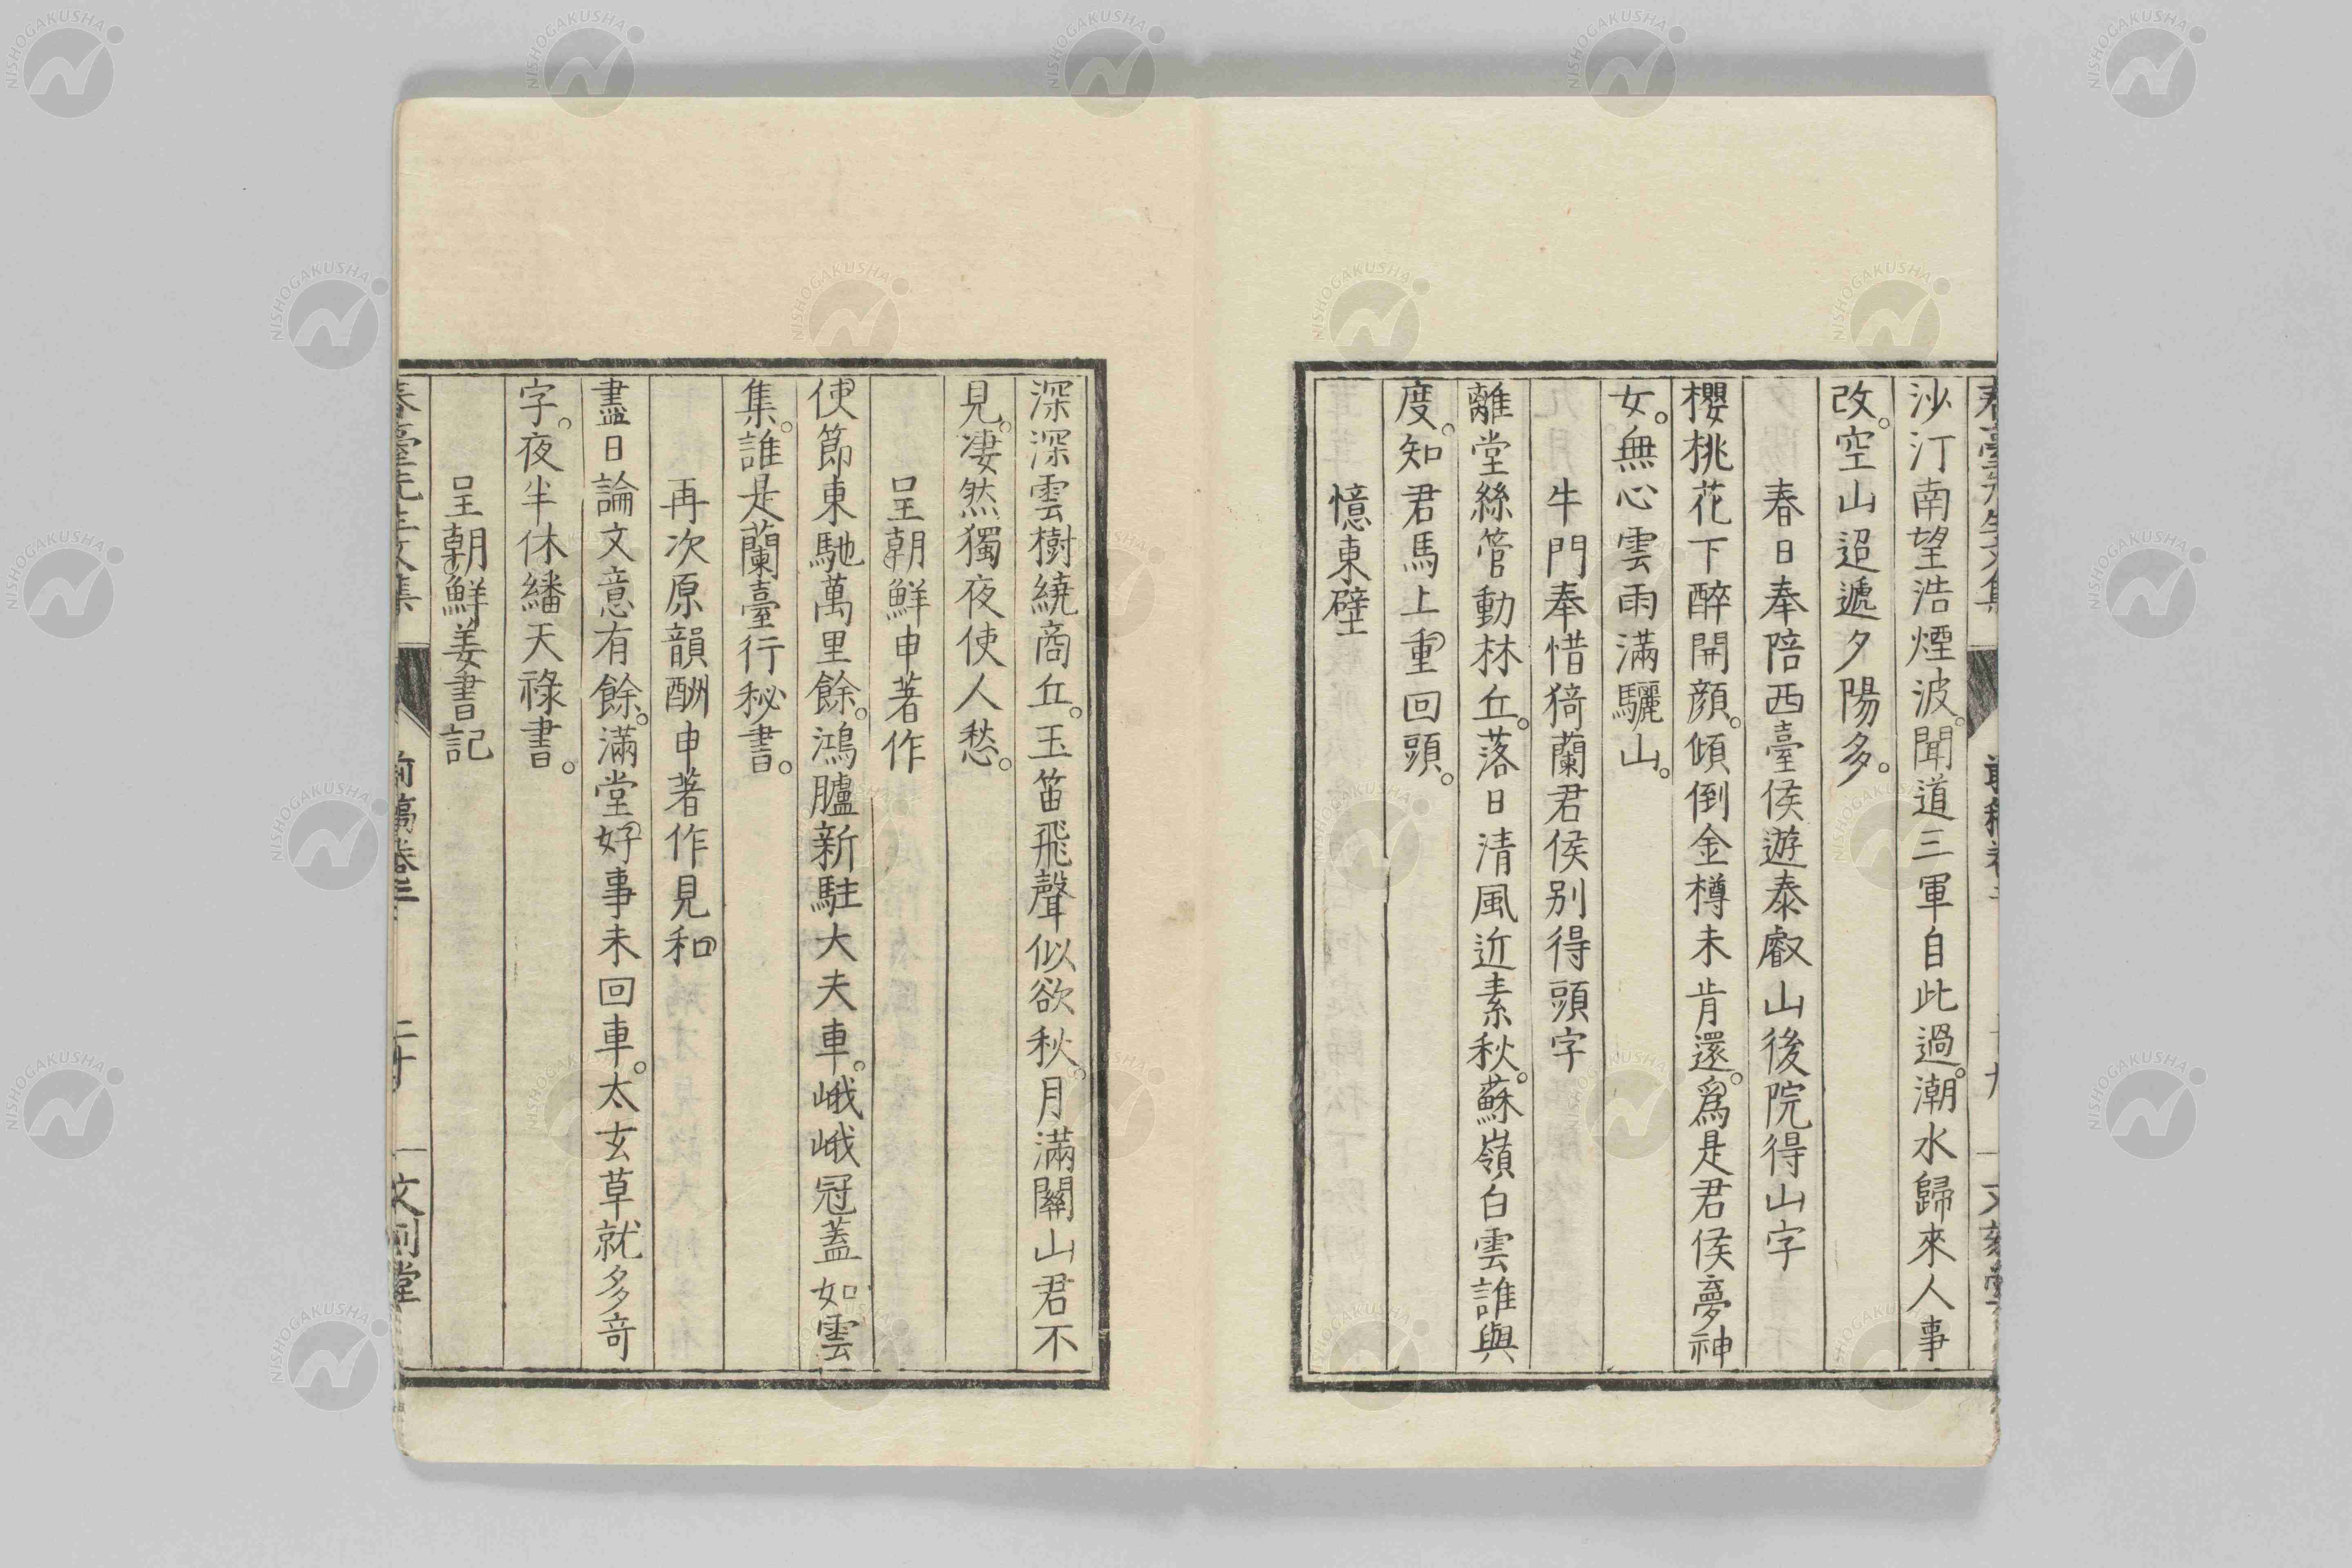 沙汀南望浩煙波。聞道三軍自此過。潮水歸來人事
改。空山迢遞夕陽多。
春日奉陪西臺侯遊泰叡山後院得山字
櫻桃花下醉開顔。傾倒金樽未肯還。爲是君侯夢神
女。無心雲雨滿驪山。
牛門奉惜猗蘭君侯別得頭字
離堂絲管動林丘。落日清風近素秋。蘇嶺白雲誰與
度。知君馬上重回頭。
憶東壁
深深雲樹繞商丘。玉笛飛聲似欲秋。月滿關山君不
見。凄然獨夜使人愁。
呈朝鮮申著作
使節東馳萬里餘。鴻臚新駐大夫車。峨峨冠蓋如雲
集。誰是蘭臺行秘書。
再次原韻酬申著作見和
盡日論文意有餘。滿堂好事未回車。太玄草就多奇
字。夜半休繙天祿書。
呈朝鮮姜書記
春臺先生文集
前稿卷三
二十
文刻堂
NISHOGAKUSHA